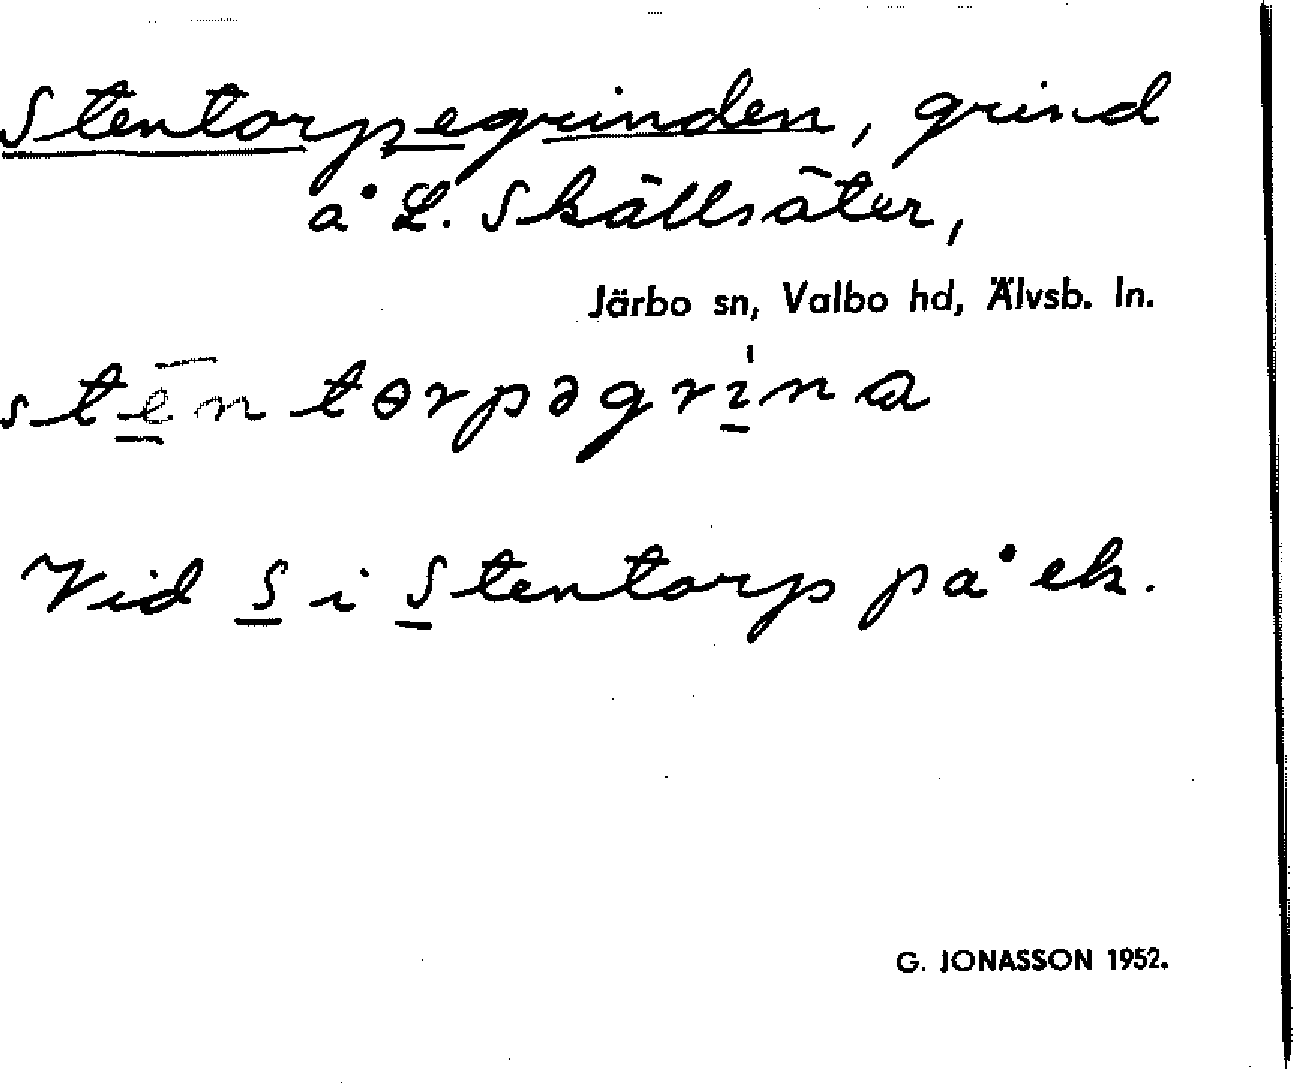 Stentorpegrinden, grind
å L. Skällsäter,
Järbo sn, Valbo hd, Älvsb. ln.
stēntɵrpəgrìna
Vid S i Stentorp på ek.
G. JONASSON 1952.